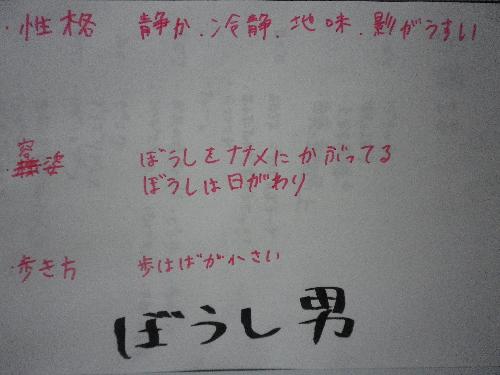 ・性格 静か、冷静、地味、影がうすい
・容姿 ぼうしをナナメにかぶってる
ぼうしは日がわり
・歩き方 歩はばが小さい
ぼうし男